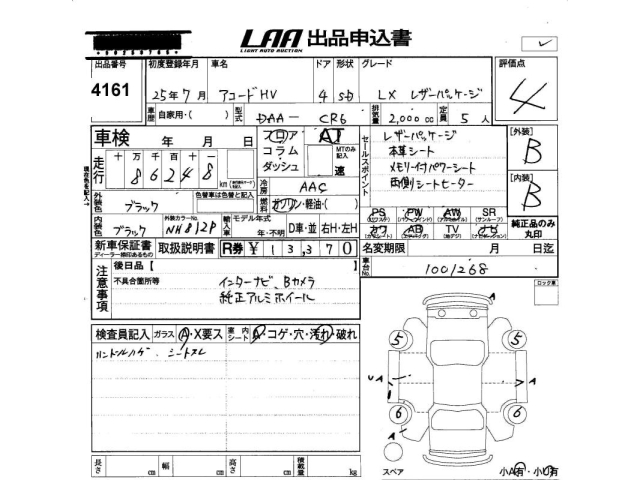 LAA 出品申込書
LIGHT AUTO AUCTION
出品番号 初度登録年月 車名 ドア 形状 グレード 評価点
4161 25年7月 アコードHV 4 SD LX レザーパッケージ 4
車歴 自家用・( ) 型式 DAA- CR6 排気量 2,000cc 定員 5人
車検 年 月 日 フロア AT セールスポイント レザーパッケージ [外装] B
コラム MTのみ記入 本革シート
走行 十万千百十一 ダッシュ 速 メモリー付パワーシート
86248 km 冷房 AAC 両側シートヒーター [内装] B
現在色を記入→
外装色 ブラック 色替車は色替と記入 燃料 ガソリン・軽油・( )
PS PW AW SR
内装色 ブラック 外装カラーNo. NH812P 輸入車 モデル年式 年・不明 D車・並 右H・左H
カワ AB TV ナビ 純正品のみ丸印
新車保証書 取扱説明書 R券 ¥ 13370 名変期限 月 日迄
ディーラー捺印あるもの
車台No. 1001268
注意事項 後日品【 】
不具合箇所等 インターナビ、Bカメラ
純正アルミホイール
ロック車
検査員記入 ガラス A・X要ス 車内シート A・コゲ・穴・汚れ・破れ
ハンドルハゲ、シートスレ
A
5 5
UA A
6 6
A
スペア 小A有・小U有
長さ cm 幅 cm 高さ cm 積載量 kg